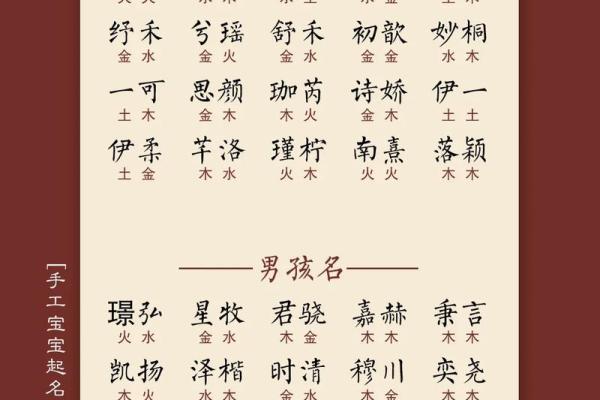 纾禾 兮瑶 舒禾 初歆 妙桐
金水 金火 金水 金金 水木
一可 思颜 珈芮 诗娇 伊一
土木 金木 木火 金木 土土
伊柔 芊洛 瑾柠 南熹 落颖
土金 木水 火木 火火 木木
男孩名
璟弘 星牧 君骁 嘉赫 秉言
火水 金水 木金 木木 木木
凯扬 泽楷 时清 穆川 奕尧
[手工宝宝起名